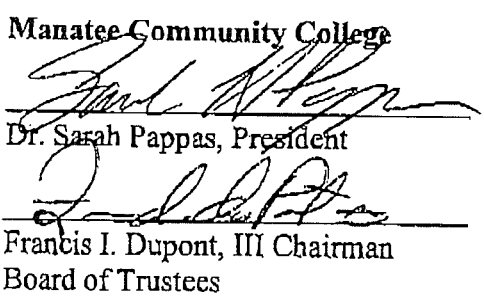 Manatee Community College
Dr. Sarah Pappas, President
Francis I. Dupont, III Chairman
Board of Trustees